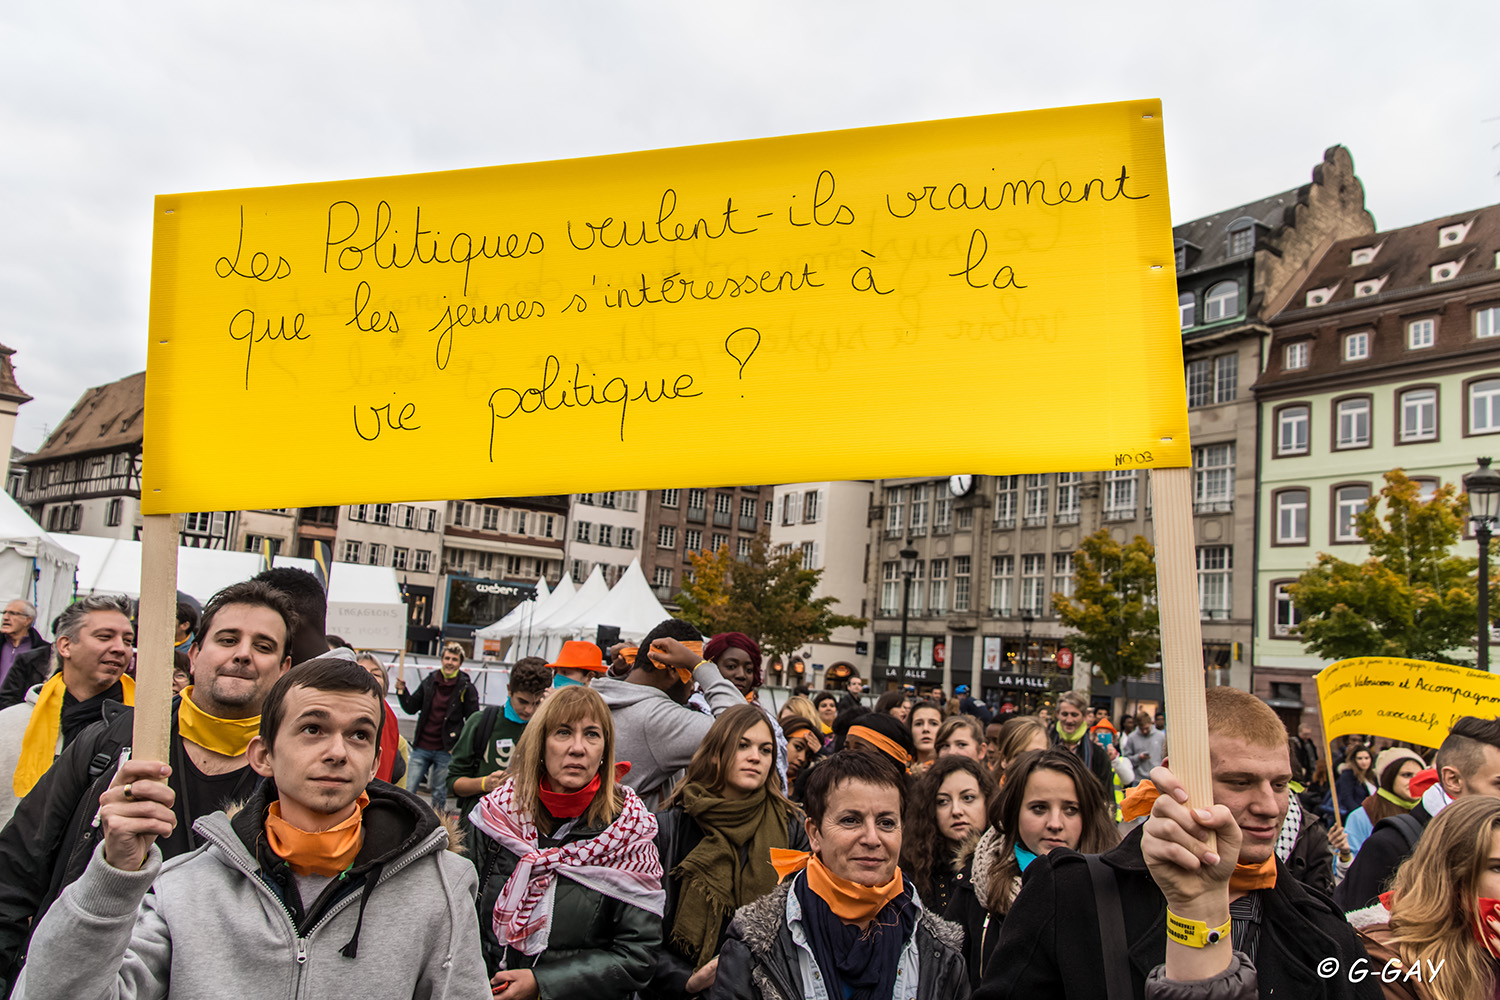 Les Politiques veulent-ils vraiment
que les jeunes s'intéressent à la
vie politique ?
NO 03
weber
ENGAGEONS
LA HALLE
LA HALLE
Valorisons et Accompagnons
associatifs
© G-GAY